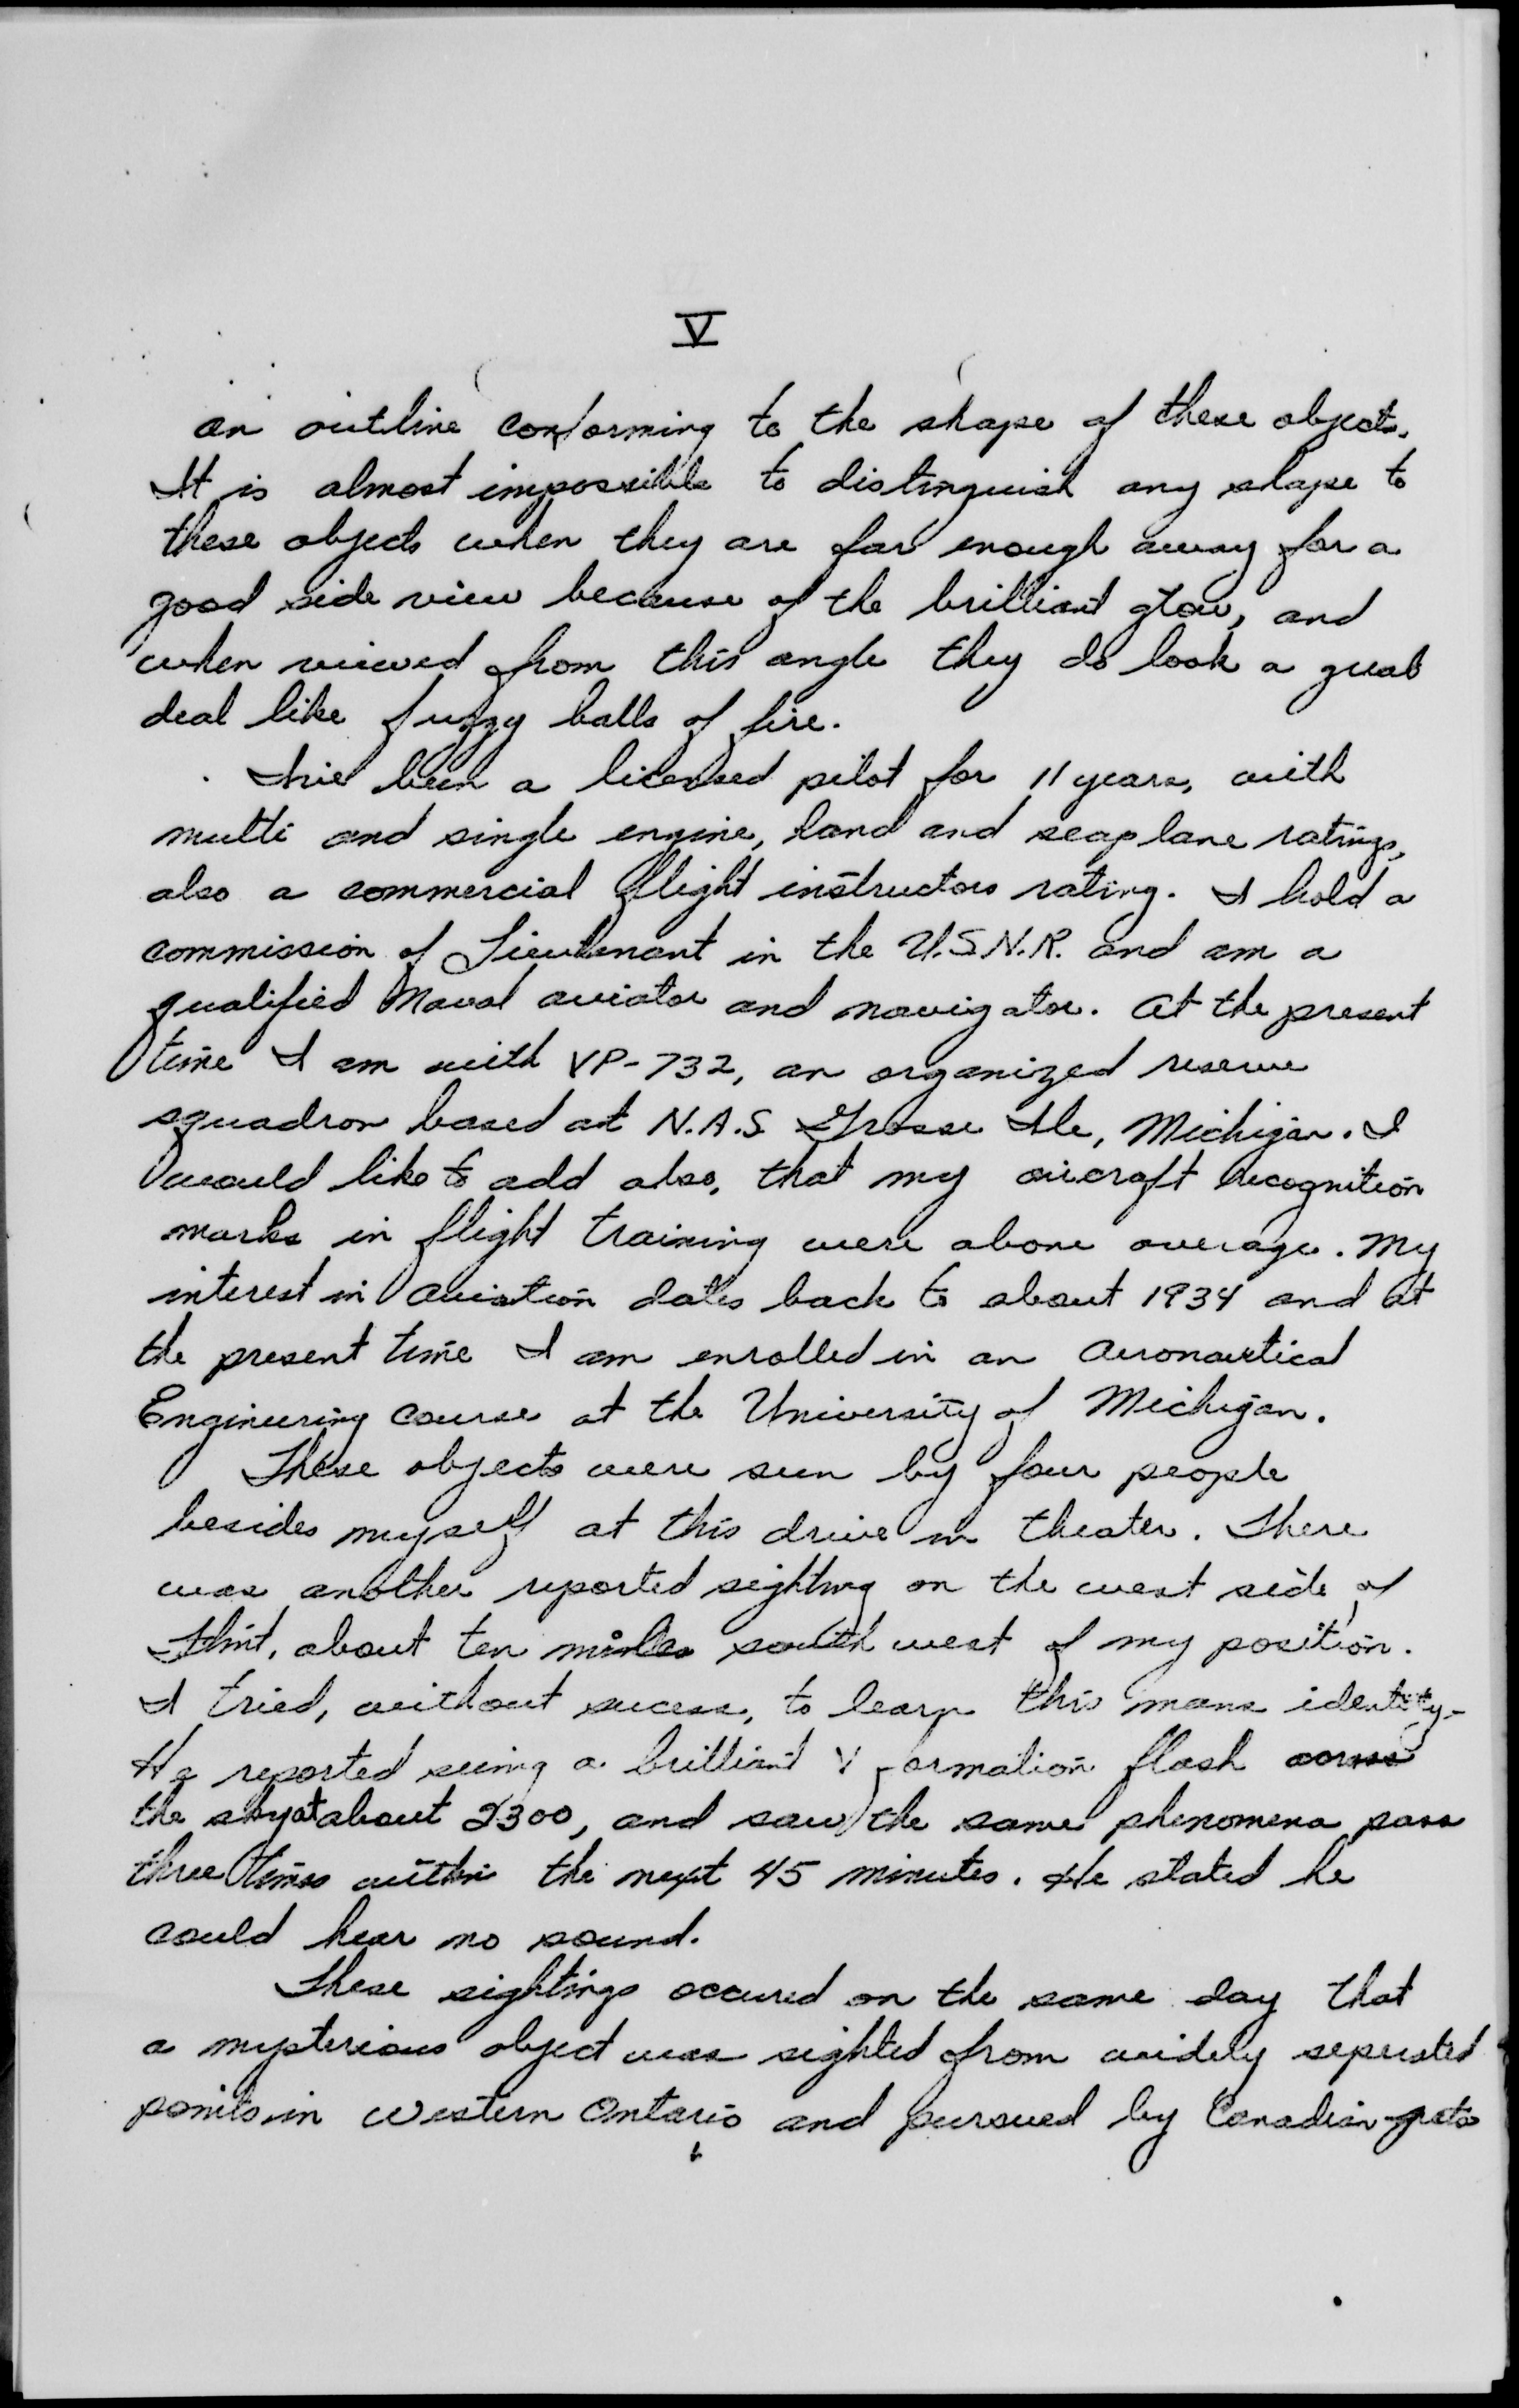 V
an outline conforming to the shape of these objects.
It is almost impossible to distinguish any shape to
these objects when they are far enough away for a
good side view because of the brilliant glow, and
when viewed from this angle they do look a great
deal like fuzzy balls of fire.
I've been a licensed pilot for 11 years, with
multi and single engine, land and seaplane ratings,
also a commercial flight instructors rating. I hold a
commission of Lieutenant in the U.S.N.R. and am a
qualified Naval aviator and navigator. At the present
time I am with VP-732, an organized reserve
squadron based at N.A.S Grosse Ile, Michigan. I
would like to add also, that my aircraft recognition
marks in flight training were above average. My
interest in aviation dates back to about 1934 and at
the present time I am enrolled in an Aeronautical
Engineering course at the University of Michigan.
These objects were seen by four people
besides myself at this drive in theater. There
was another reported sighting on the west side of
Flint, about ten miles south west of my position.
I tried, without sucess, to learn this mans identity.
He reported seeing a brilliant V formation flash across
the sky at about 2300, and saw the same phenomena pass
three times within the next 45 minutes. He stated he
could hear no sound.
These sightings occured on the same day that
a mysterious object was sighted from widely seperated
points in western Ontario and pursued by Canadian jets